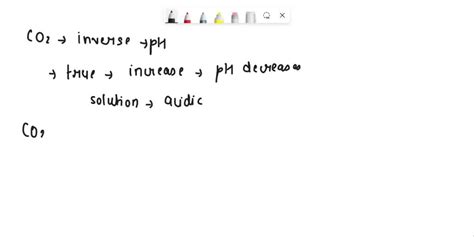 CO₂ → inverse → pH
→ true → increase → pH decreases
solution → acidic
CO₂